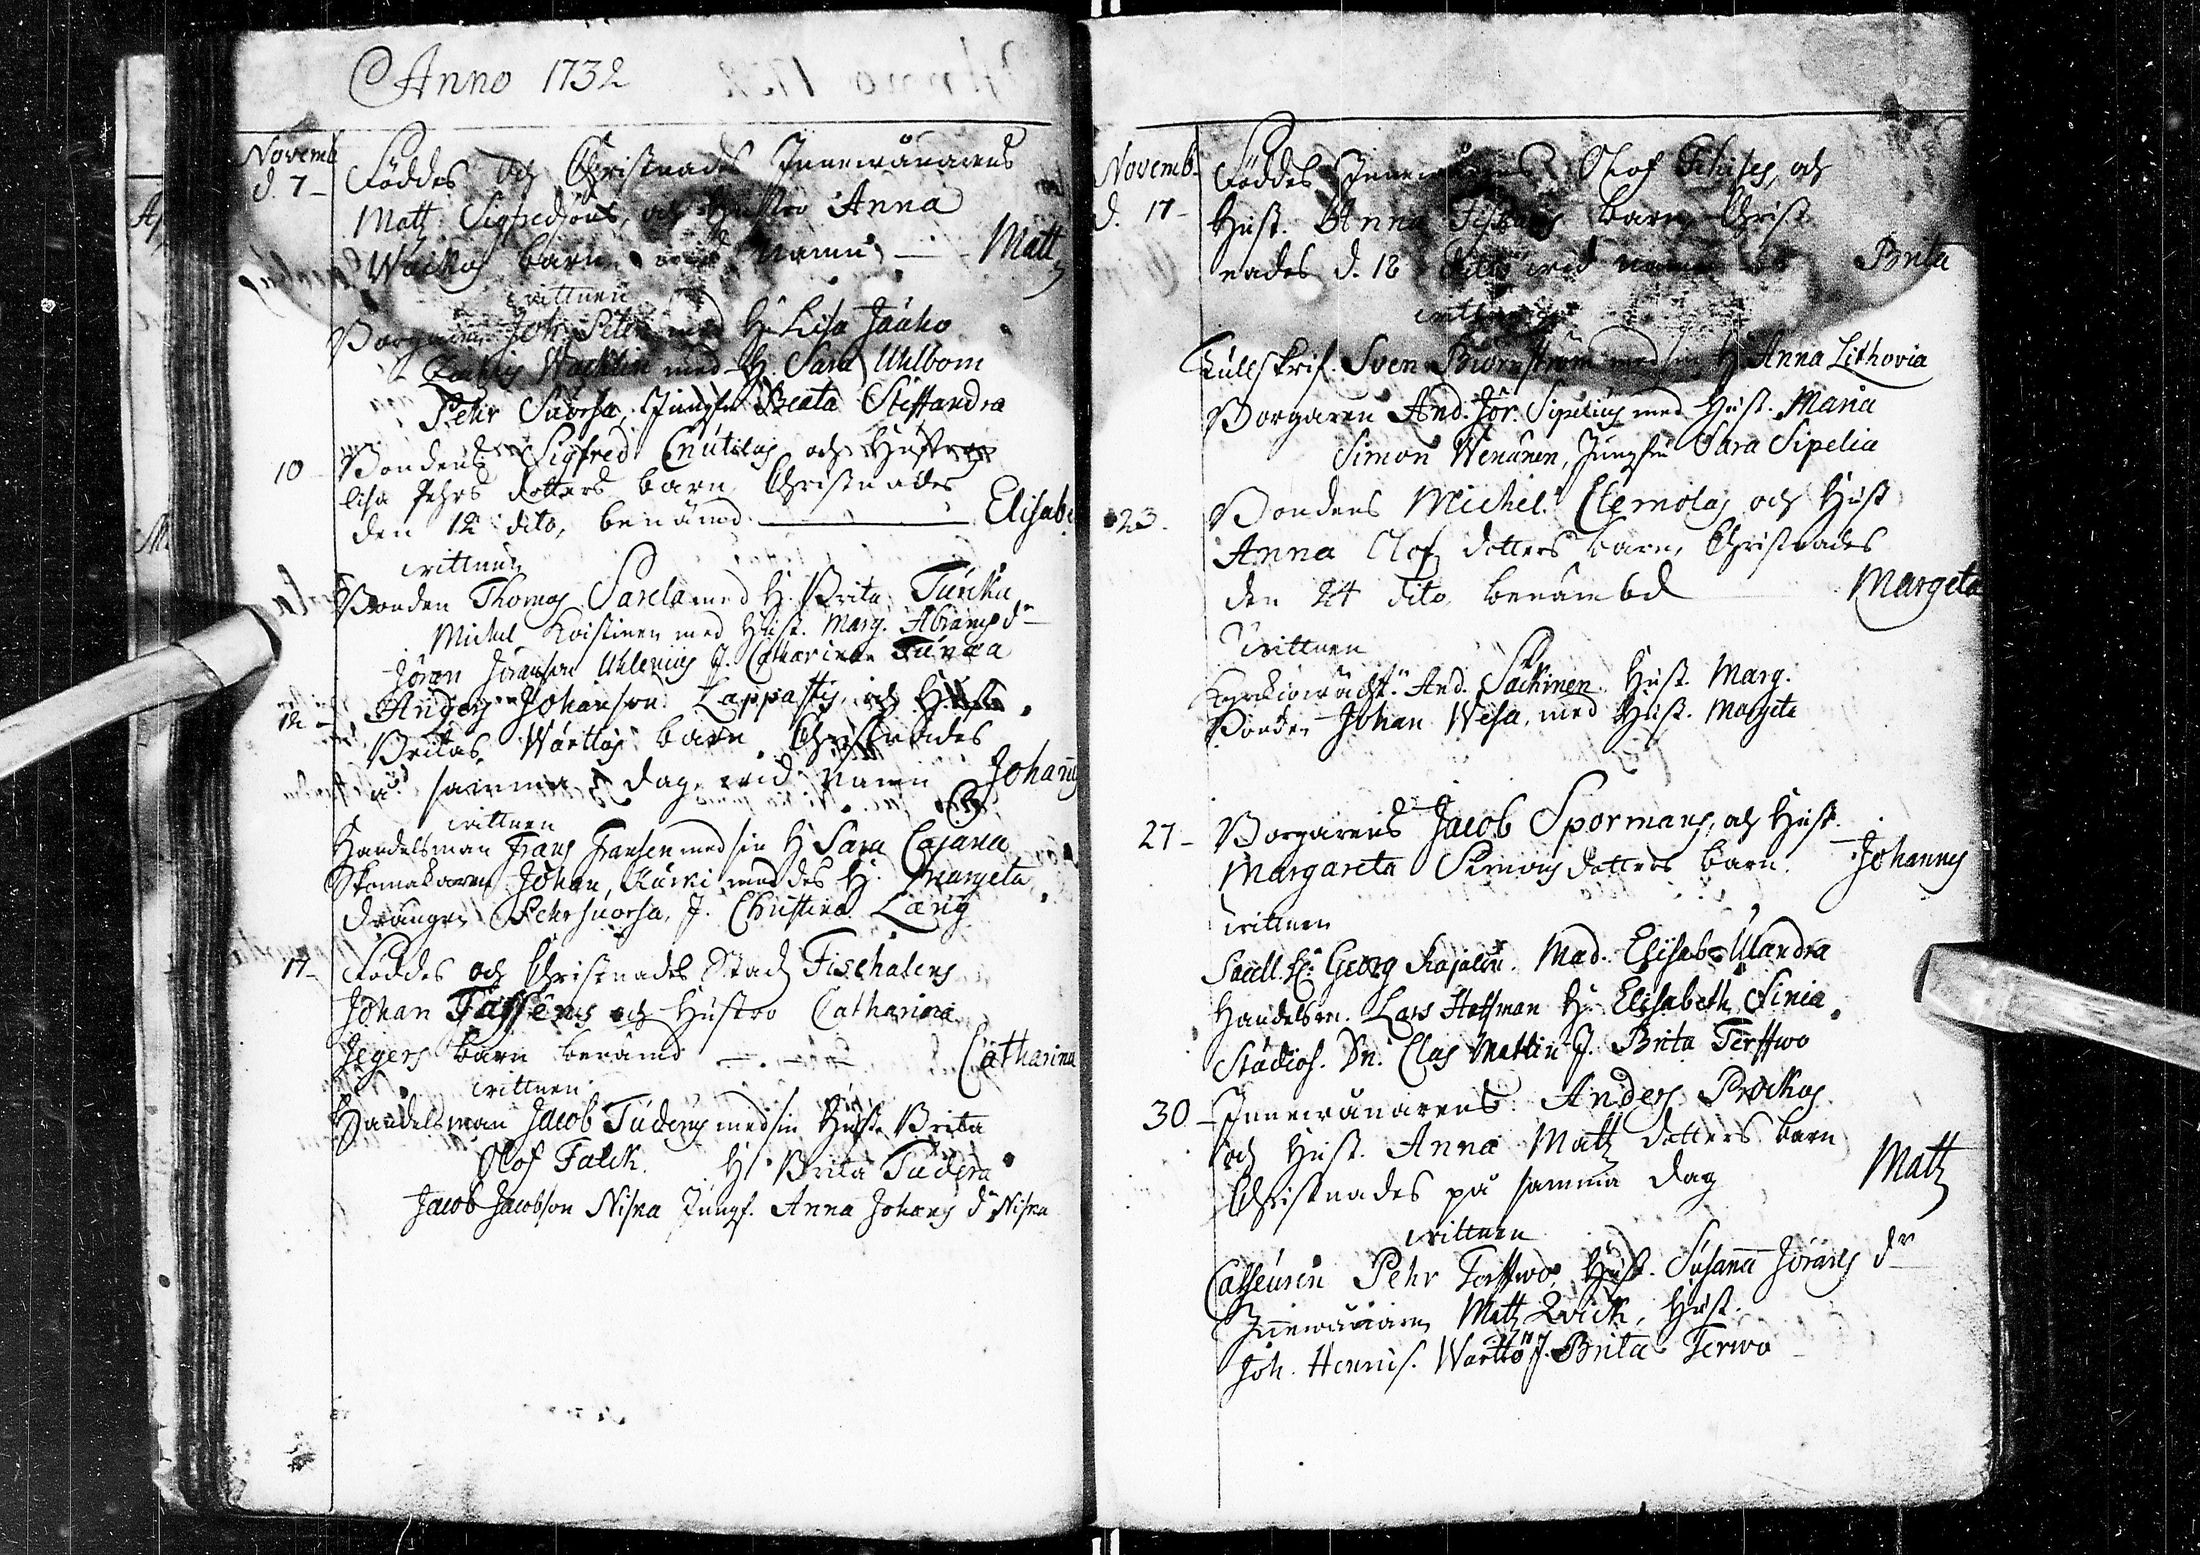 Anno 1732
Novemb. d. 7 - Föddes och Christnades Innewånarens
Matz Sigfredsons, och Hustro Anna
barn wid namn — Matz
wittnen
Borgaren Joh. med H. Lisa Jaako
Wacklin med H. Sara Uhlbom
Pehr Suorsa, Jungfru Beata Steffandra
10 - Bondens Sigfred Cnutilas och Hustro
Lisa Pehrs dotters barn Christnades
den 12 dito, benämd — Elisab:
wittnen
Bonden Thomas Sarela med H. Brita Turcku
Michel Koistinen med Hust. Marg. Abrams dr
Jöran Jöranson Uhlenius J. Catharina
12 - Anders Johanson Lappalss och Hustro
Britas barn Christnades
på samma dag wid namn Johans
wittnen
Handelsman Frans Fransen med sin H Sara Cajana
Skomakaren Johan, Kurki med des H. Margeta
drängen Pehr Suorsa, J. Christina Lang
17 - Föddes och Christnades Stads Fischalens
Johan och Hustro Catharina
Jegers barn benämd — Catharina
wittnen
Handelsman Jacob Tuderus med sin Hust. Brita
Olof Falck. H. Brita Tudera
Jacob Jacobson Niska Jungf. Anna Johans dr Niska
Novemb. d. 17 - Föddes Innewånarens Olof och
Hust. Anna barn Christ
nades d. 18 dito wid namn Brita
wittnen
Tullskrif. Sven Biörnström med sin H Anna Lithovia
Borgaren And. Jör. Sipelius med Hust. Maria
Simon Wenänen, Jungfru Sara Sipelia
23. Bondens Michel Clemolas och Hust
Anna Olofs dotters barn, Christnades
den 24 dito, benämbd Margeta
wittnen
Kyrkiowächt. And. Sackinen. Hust. Marg.
Bonden Johan Wesa, med Hust. Margeta
27 - Borgarens Jacob Spormans, och Hust.
Margareta Simons dotters barn. Johannes
wittnen
Sacell. H. Georg Kajalin. Mad. Elisab. Ulandra
Handelsm. Lars Hoffman H. Elisabeth Finia.
Studios. Dn. Clas Mattin J. Brita Terffwo
30 - Innewånarens Anders Prockas
och Hust. Anna Matz dotters barn
Christnades på samma dag Matz
wittnen
Casseuren Pehr Terffwo, Hust. Susanna Jörans dr
Innewånaren Matz Qvick, Hust.
Joh. Henrics. Wartto J. Brita Terwo